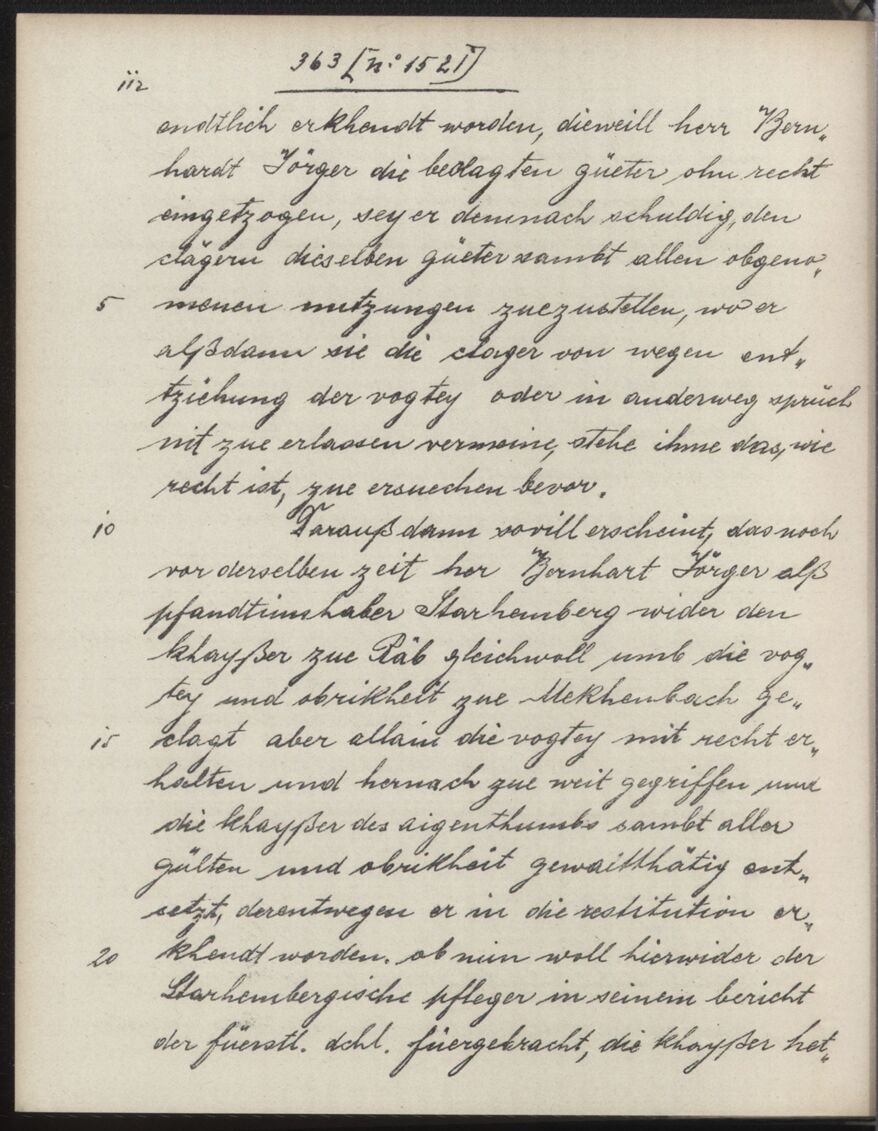 363 [No 1521]
112
endtlich erkhendt worden, dieweill herr Bern„
hardt Jörger die beclagten güeter ohn recht
eingetzogen, sey er demnach schuldig, den
clägern dieselben güeter sambt allen obgeno„
5 menen nutzungen zuezustellen, wo er
alßdann sie die clager von wegen ent„
tziehung der vogtey oder in anderweg sprüch
nit zue erlassen vermeine, stehe ihme das, wie
recht ist, zue ersuechen bevor.
10 Darauß dann sovill erscheint, das noch
vor derselben zeit her Bernhart Jörger alß
pfandtinnhaber Starhemberg wider den
khayßer zue Räb gleichwoll umb die vog„
tey und obrikheit zue Mekhenbach ge„
15 clagt aber allain die vogtey mit recht er„
halten und hernach zue weit gegriffen unnd
die khayßer des aigenthumbs sambt aller
gülten und obrikheit gewaltthätig ent„
setzt, derentwegen er in die restitution er„
20 khendt worden. ob nun woll hierwider der
Starhembergische pfleger in seinem bericht
der füerstl. dchl. füergebracht, die khayßer het„